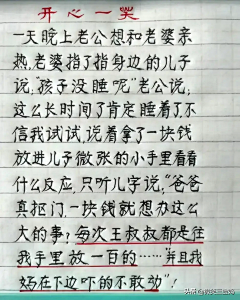 开心一笑
一天晚上老公想和老婆亲
热,老婆指了指身边的儿子
说,"孩子没睡呢"老公说,
这么长时间了肯定睡着了不
信我试试,说着拿了一块钱
放进儿子微张的小手里看看
什么反应,只听儿字说,"爸爸
真抠门,一块钱就想办这么
大的事?每次王叔叔都是往
我手里放一百的……"并且我
妈在下边吓的不敢动"!